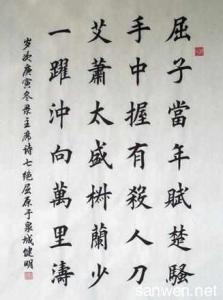 屈子當年賦楚騷
手中握有殺人刀
艾蕭太盛椒蘭少
一躍沖向萬里濤
岁次庚寅冬录主席诗七绝屈原于泉城健明
sanwen.net